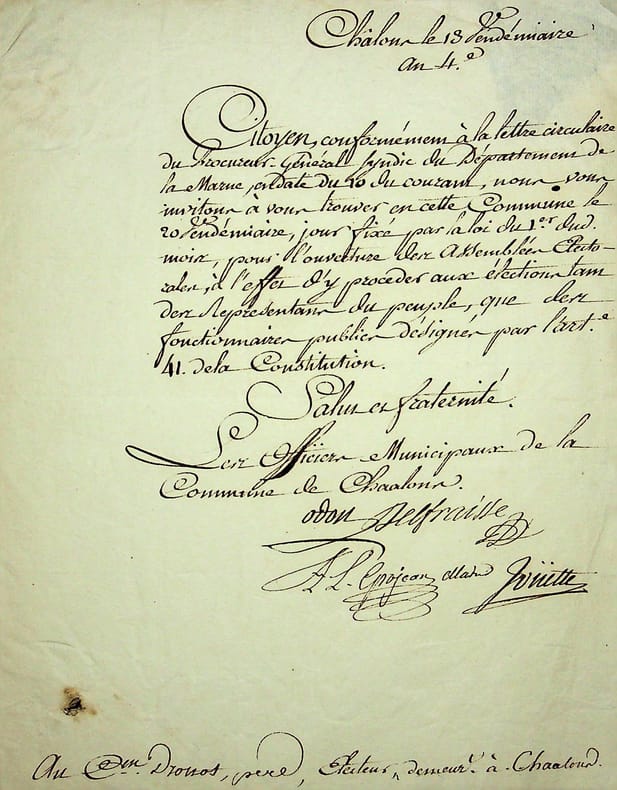 Châlons le 13 Vendémiaire
an 4.e
Citoyen, conformément à la lettre circulaire
du Procureur-Général Syndic du Département de
la Marne, en date du 10 du courant, nous vous
invitons à vous trouver en cette Commune le
20 Vendémiaire, jour fixé par la loi du 1.er dud.
mois, pour l'ouverture des Assemblées Electo-
rales, à l'effet d'y procéder aux élections tant
des Représentans du peuple, que des
fonctionnaires publics désignés par l'art.e
41. de la Constitution.
Salut et fraternité.
Les Officiers Municipaux de la
Commune de Chaalons.
odon Delfraisse
A L. Grojean Joüette
Au C.en Drouot, père, Electeur, demeur.t à Chaalons.